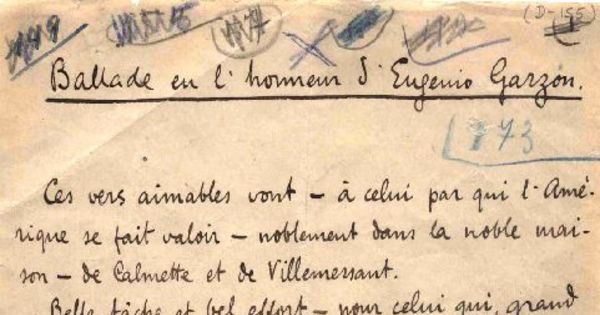 (D-155)
Ballade en l'honneur d'Eugenio Garzón.
173
Ces vers aimables vont – à celui par qui l'Amé-
rique se fait valoir – noblement dans la noble mai-
son – de Calmette et de Villemessant.
Belle tâche et bel effort – pour celui qui, grand